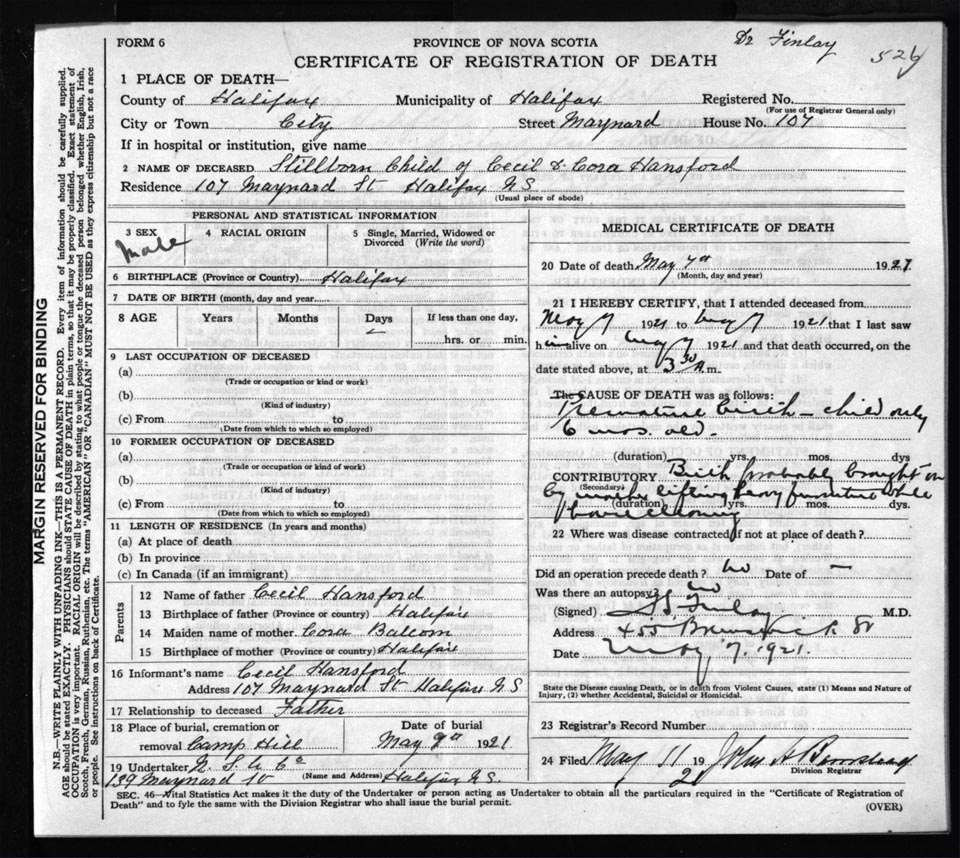 FORM 6
PROVINCE OF NOVA SCOTIA
Dr Finlay
526
CERTIFICATE OF REGISTRATION OF DEATH
1 PLACE OF DEATH—
County of Halifax Municipality of Halifax Registered No.
(For use of Registrar General only)
City or Town City Street Maynard House No. 107
If in hospital or institution, give name
2 NAME OF DECEASED Stillborn Child of Cecil & Cora Hansford
Residence 107 Maynard St Halifax N S
(Usual place of abode)
PERSONAL AND STATISTICAL INFORMATION
3 SEX 4 RACIAL ORIGIN 5 Single, Married, Widowed or
Divorced (Write the word)
Male
6 BIRTHPLACE (Province or Country) Halifax
7 DATE OF BIRTH (month, day and year)
8 AGE Years Months Days If less than one day,
hrs. or min.
9 LAST OCCUPATION OF DECEASED
(a)
(Trade or occupation or kind or work)
(b)
(Kind of industry)
(c) From to
(Date from which to which so employed)
10 FORMER OCCUPATION OF DECEASED
(a)
(Trade or occupation or kind of work)
(b)
(Kind of industry)
(c) From to
(Date from which to which so employed)
11 LENGTH OF RESIDENCE (In years and months)
(a) At place of death
(b) In province
(c) In Canada (if an immigrant)
Parents
12 Name of father Cecil Hansford
13 Birthplace of father (Province or country) Halifax
14 Maiden name of mother Cora Balcom
15 Birthplace of mother (Province or country) Halifax
16 Informant's name Cecil Hansford
Address 107 Maynard St Halifax N S
17 Relationship to deceased Father
18 Place of burial, cremation or Date of burial
removal Camp Hill May 9th 1921
19 Undertaker N. S. U Co
139 Maynard St (Name and Address) Halifax N.S.
MEDICAL CERTIFICATE OF DEATH
20 Date of death May 7th 1921
(Month, day and year)
21 I HEREBY CERTIFY, that I attended deceased from
May 7 1921 to May 7 1921 that I last saw
h im alive on May 7 1921 and that death occurred, on the
date stated above, at 3 30 A.m.
The CAUSE OF DEATH was as follows:
Premature birth — child only
6 mos. old.
(duration) yrs. mos. dys
CONTRIBUTORY Birth probably brought on
(Secondary)
by mother lifting heavy furniture while
(duration) yrs. mos. dys.
housecleaning
22 Where was disease contracted if not at place of death?
Did an operation precede death? no Date of —
Was there an autopsy? no
(Signed) Finlay M.D.
Address 455 Brunswick St
Date May 7. 1921.
State the Disease causing Death, or in death from Violent Causes, state (1) Means and Nature of
Injury, (2) whether Accidental, Suicidal or Homicidal.
23 Registrar's Record Number
24 Filed May 11 1921 John A
Division Registrar
SEC. 46—Vital Statistics Act makes it the duty of the Undertaker or person acting as Undertaker to obtain all the particulars required in the "Certificate of Registration of
Death" and to fyle the same with the Division Registrar who shall issue the burial permit.
(OVER)
MARGIN RESERVED FOR BINDING
N.B.—WRITE PLAINLY WITH UNFADING INK—THIS IS A PERMANENT RECORD. Every item of information should be carefully supplied.
AGE should be stated EXACTLY. PHYSICIANS should STATE CAUSE OF DEATH in plain terms, so that it may be properly classified. Exact statement of
OCCUPATION is very important. RACIAL ORIGIN will be described by stating to what people or tongue the deceased person belonged whether English, Irish,
Scotch, French, German, Russian, Ruthenian, etc. The terms "AMERICAN" OR "CANADIAN" MUST NOT BE USED as they express citizenship but not a race
or people. See instructions on back of Certificate.